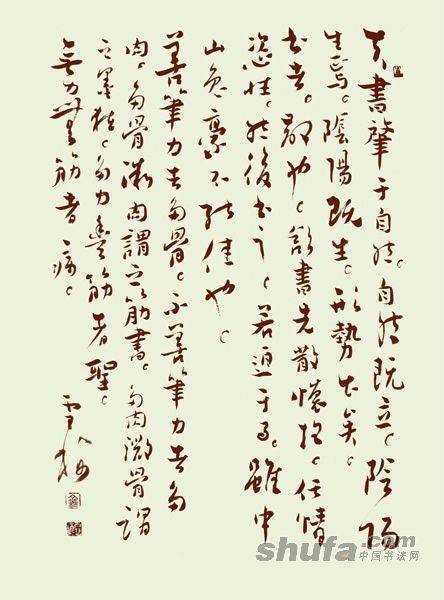 夫書肇于自然。自然既立。陰陽
生焉。陰陽既生。形勢出矣。
書者。散也。欲書先散懷抱。任情
恣性。然後書之。若迫于事。雖中
山兔豪不能佳也。
善筆力者多骨。不善筆力者多
肉。多骨微肉謂之筋書。多肉微骨謂
之墨猪。多力豐筋者聖。
無力無筋者病。
shufa.com
中国书法网